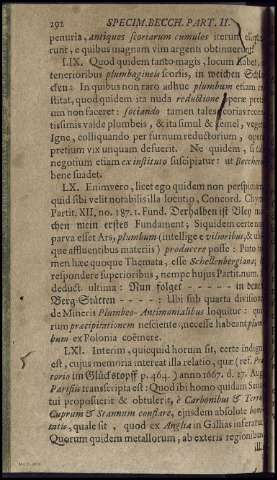 292 SPECIM. BECCH. PART. II.
penuria, antiques scoriarum cumulos iterum
runt, e quibus magnam vim argenti obtinuerunt
LIX. Quod quidem tanto magis, locum habet,
tenerioribus plumbagineis scoriis, in weichen
cken: In quibus non raro adhuc plumbum etiam
stitat, quod quidem ita nuda reductione operæ preti-
um non faceret: sociando tamen tales scorias recen-
tissimis valde plumbeis, & ita simul & semel, vege
Igne, colliquando per furnum reductorium,
pretium vix unquam defuerit. Ne quidem, si
negotium etiam ex instituto suscipiatur: ut Beccherus
bene suadet.
LX. Enimvero, licet ego quidem non perspiciam
quid sibi velit notabilis illa locutio, Concord. Chym.
Partit. XII, no. 187. 1. Fund. Derhalben ist Bley
chen mein erstes Fundament; Siquidem certe non
parva esset Ars, plumbum (intellige e vilioribus, &
que affluentibus materiis) producere posse: Puto
men hæc quoque Themata, esse Schellenbergiana;
respondere superioribus, nempe hujus Partit. num.
deduct. ultima: Nun folget - - - - in
Berg-Städten - - - - : Ubi sub quarta divisione
de Mineris Plumbeo-Antimonialibus loquitur:
rum præcipitationem nesciente, necesse habeant plum-
bum ex Polonia coëmere.
LXI. Interim, quicquid horum sit, certe indignum
est, cujus memoria intereat illa relatio, quæ (ref.
torio im Glücks-topff p. 464.) anno 1667. d. 27. Aug.
Parisiis transcripta est: Quod ibi homo quidam
tui proposuerit & obtulerit, è Carbonibus & Terra
Cuprum & Stannum conflare, ejusdem absolute boni-
tatis, quale sit, quod ex Anglia in Gallias infertur.
Quorum quidem metallorum, ab exteris regionibus